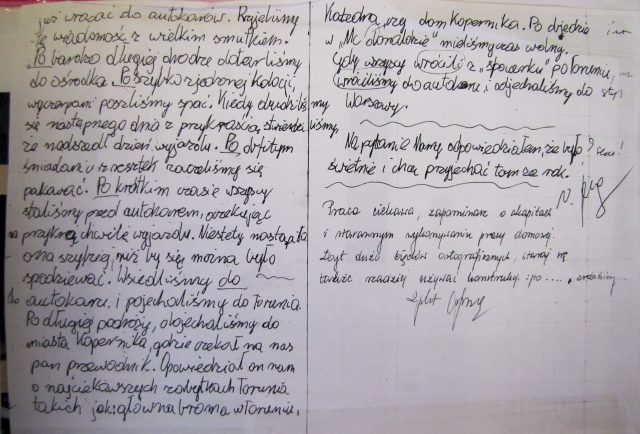 już wracać do autokarów. Przyjeliśmy
tę wiadomość z wielkim smutkiem.
Po bardzo długiej chodzce dotarliśmy
do ośrodka. Po szybko zjedzonej kolacji,
wyczerpani poszliśmy spać. Kiedy obudziliśmy
się następnego dnia z przykrością stwierdziliśmy,
że nadszedł dzień wyjazdu. Po obfitym
śniadaniu z resztek zaczeliśmy się
pakować. Po krótkim czasie wszyscy
staliśmy przed autokarem, czekając
na przykrą chwilę wyjazdu. Niestety nastąpiła
ona szybciej, niż by się można było
spodziewać. Wsiedliśmy do
do autokaru i pojechaliśmy do torunia
Po długiej podróży, dojechaliśmy do
miasta Kopernika, gdzie czekał na nas
pan przewodnik. Opowiedział on nam
o najciekawszych zabytkach Torunia
takich jak: główna brama w Toruniu,
Katedra, czy dom Kopernika. Po objedzie
w "Mc'donaldzie" mieliśmy czas wolny.
Gdy wszyscy wrócili z "spacerku" po Toruniu,
wróciliśmy do autokaru i odjechaliśmy do
Warszawy.
Na pytanie Mamy odpowiedziałam, że było
świetnie i chcę przyjechać tam za rok.
Praca ciekawa, zapominasz o akapitach
i starannym wykonywaniu pracy domowej.
Zbyt dużo błędów ortograficznych, staraj się
też rzadziej używać konstrukcji: po.....,